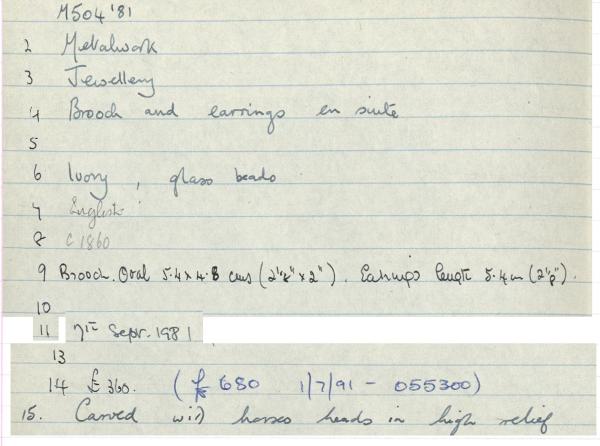 M504'81
2 Metalwork
3 Jewellery
4 Brooch and earrings en suite
5
6 Ivory, glass beads
7 English
8 C 1860
9 Brooch. Oval 5.4 x 4.8 cms (2 1/8" x 2"). Earrings length 5.4 cm (2 1/8").
10
11 7TH Sepr. 1981
13
14 £360. (£ 680 1/7/91 - 055300)
15. Carved with horses heads in high relief